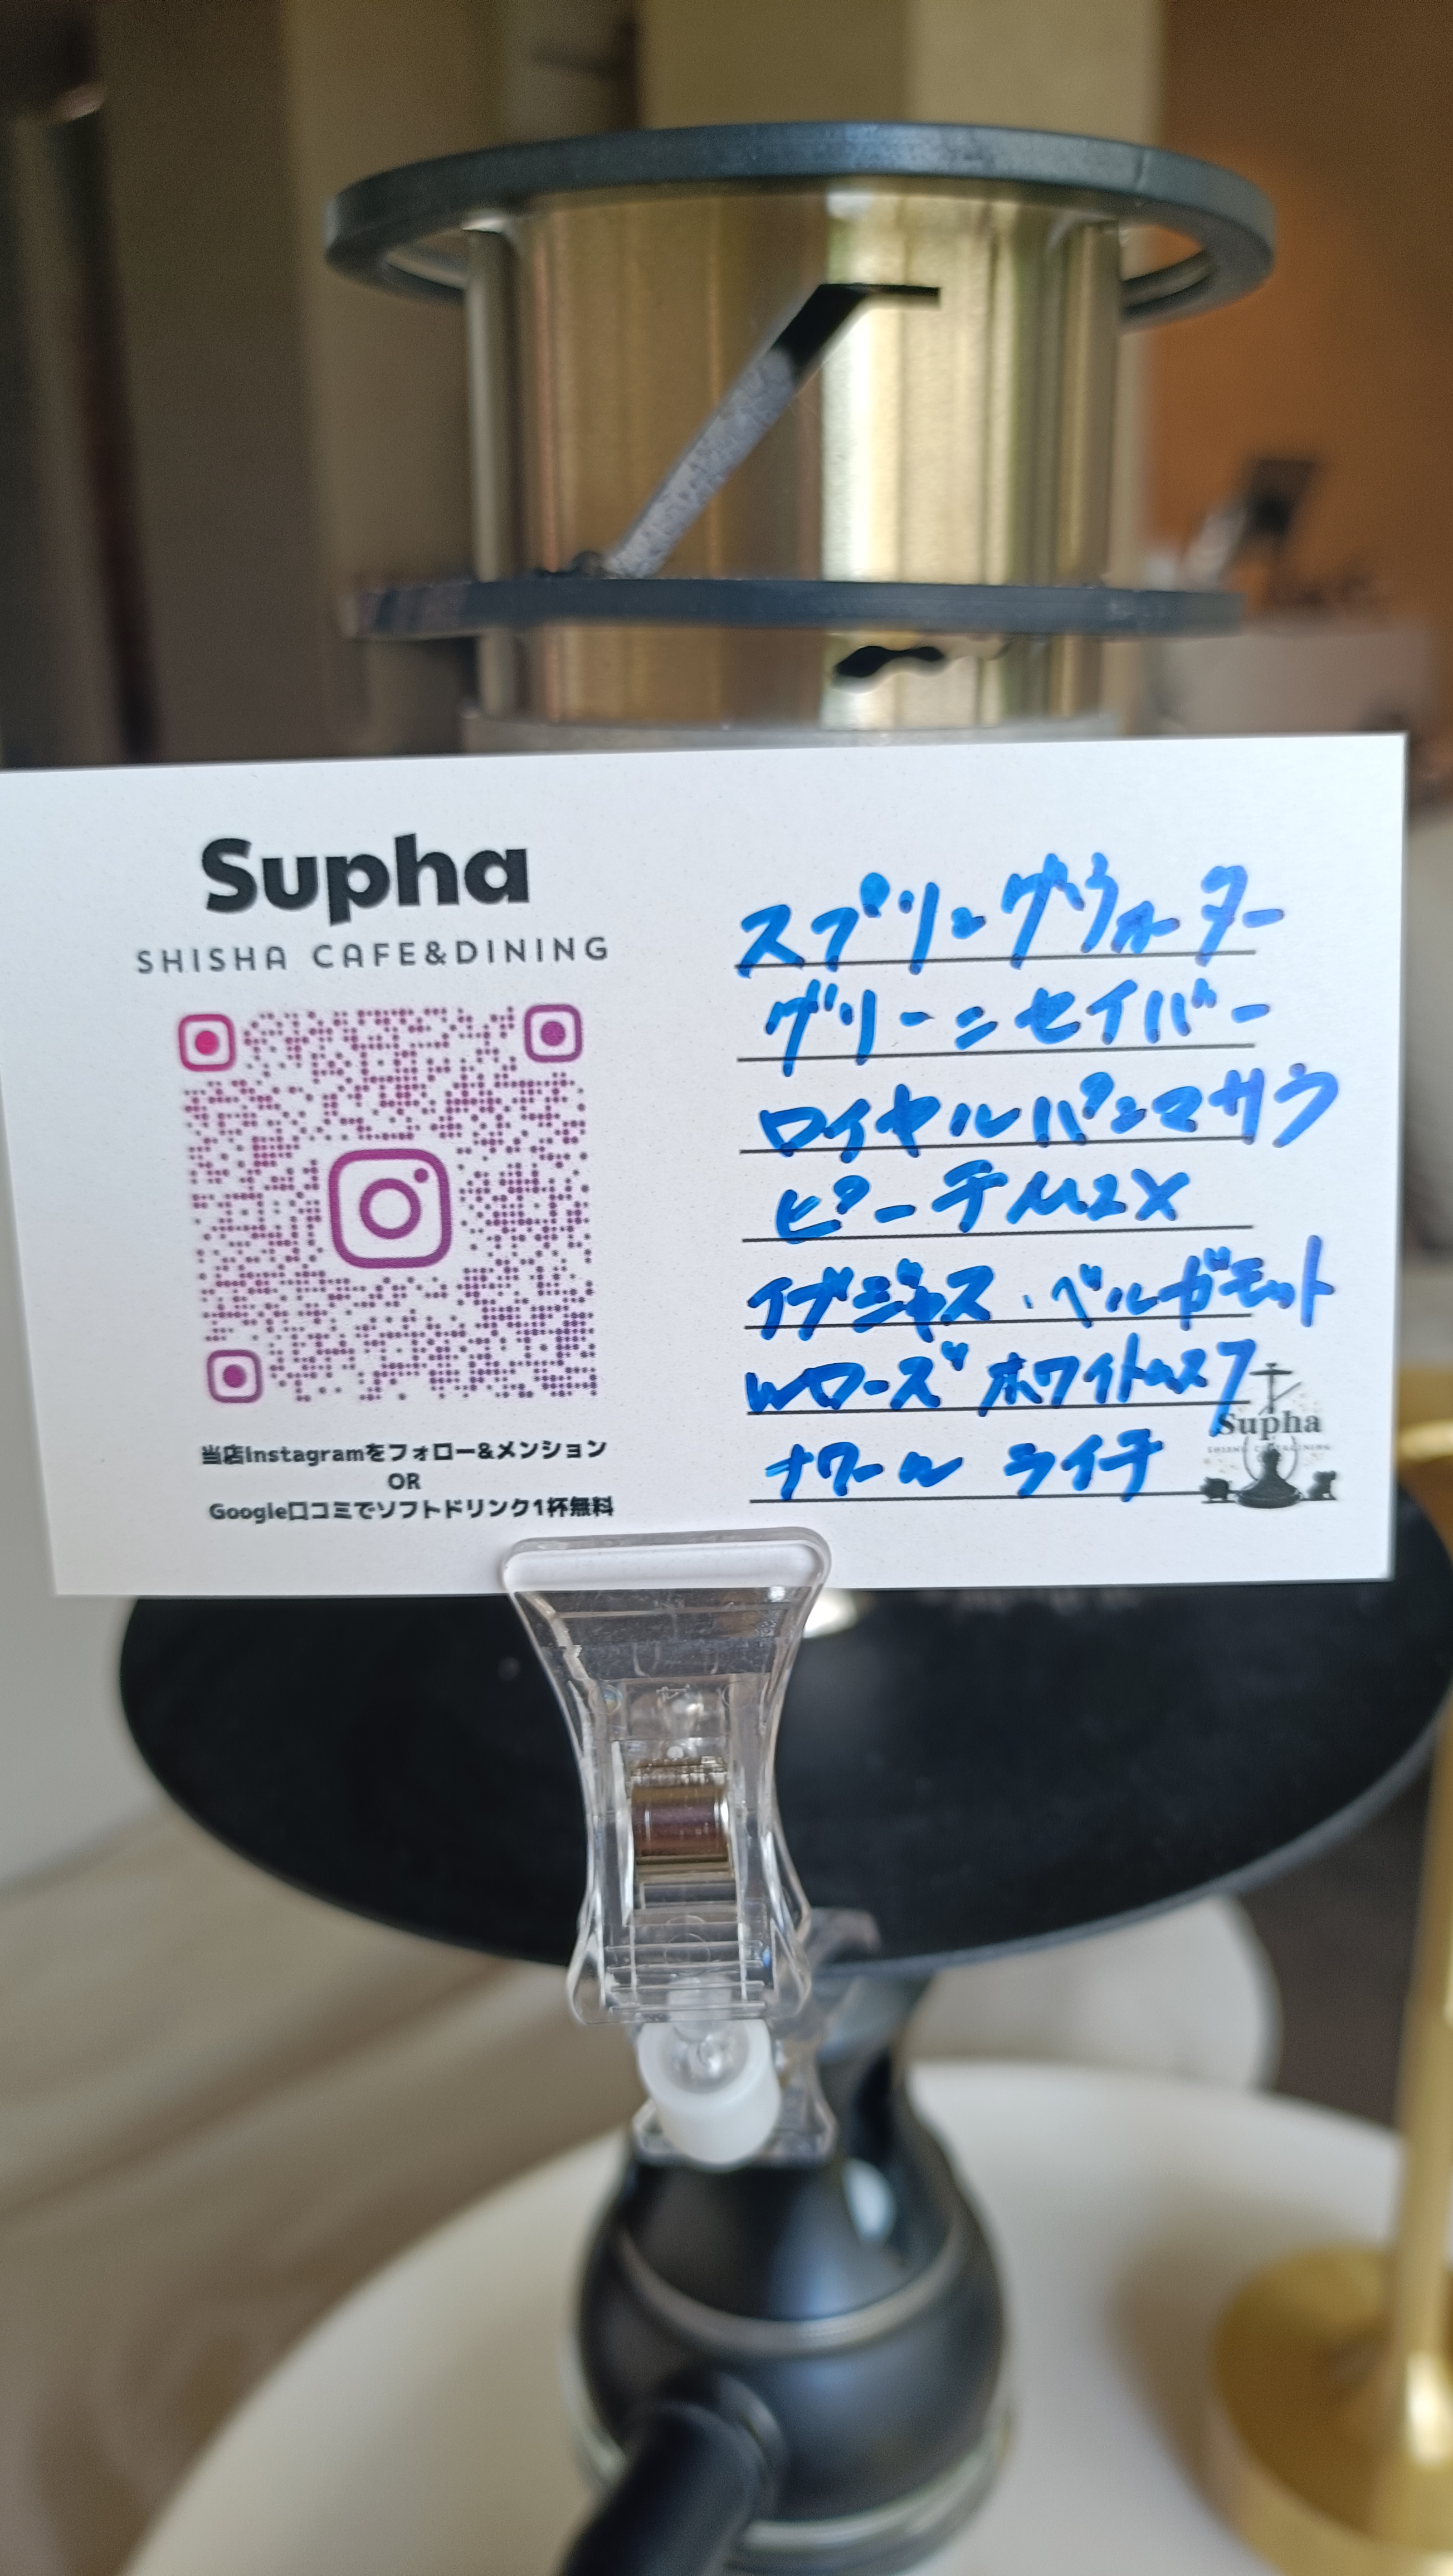 Supha
SHISHA CAFE&DINING
当店Instagramをフォロー&メンション
OR
Google口コミでソフトドリンク1杯無料
スプリングウォーター
グリーンセイバー
ロイヤルパンマサラ
ピーチMIX
イブジャス、ベルガモット
Wローズ ホワイトムスク
ナワール ライチ
Supha